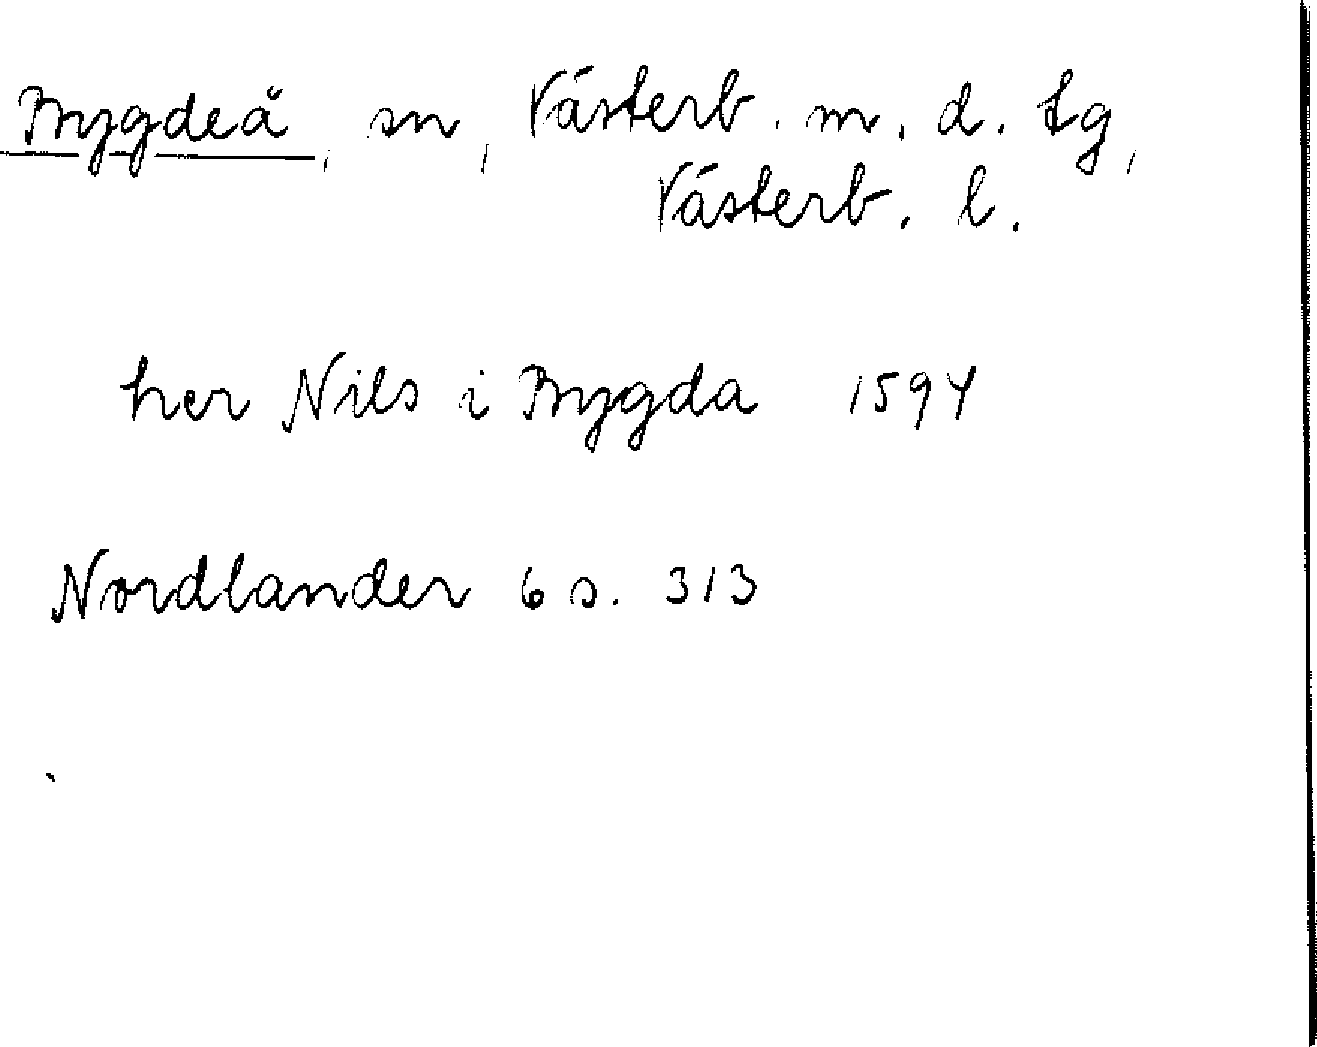 Bygdeå, sn, Västerb. m. d. tg,
Västerb. l.
her Nils i Bygda 1594
Nordlander 6 s. 313